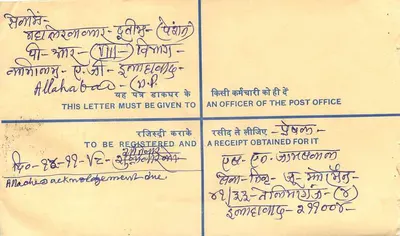 सेवामें-
महालेखाकार - द्वितीय - (पेंशन)
पी - आर - (VIII) - विभाग -
कार्यालय - ए. जी - इलाहाबाद -
Allahabad - U.P.
यह पत्र डाकघर के
THIS LETTER MUST BE GIVEN TO
किसी कर्मचारी को ही दें
AN OFFICER OF THE POST OFFICE
रजिस्ट्री कराके
TO BE REGISTERED AND
दि०-१४-११-
acknowledgement due
रसीद ले लीजिए - प्रेषक -
A RECEIPT OBTAINED FOR IT
एस. एन. जायसवाल
इलाहाबाद - २११००४ -